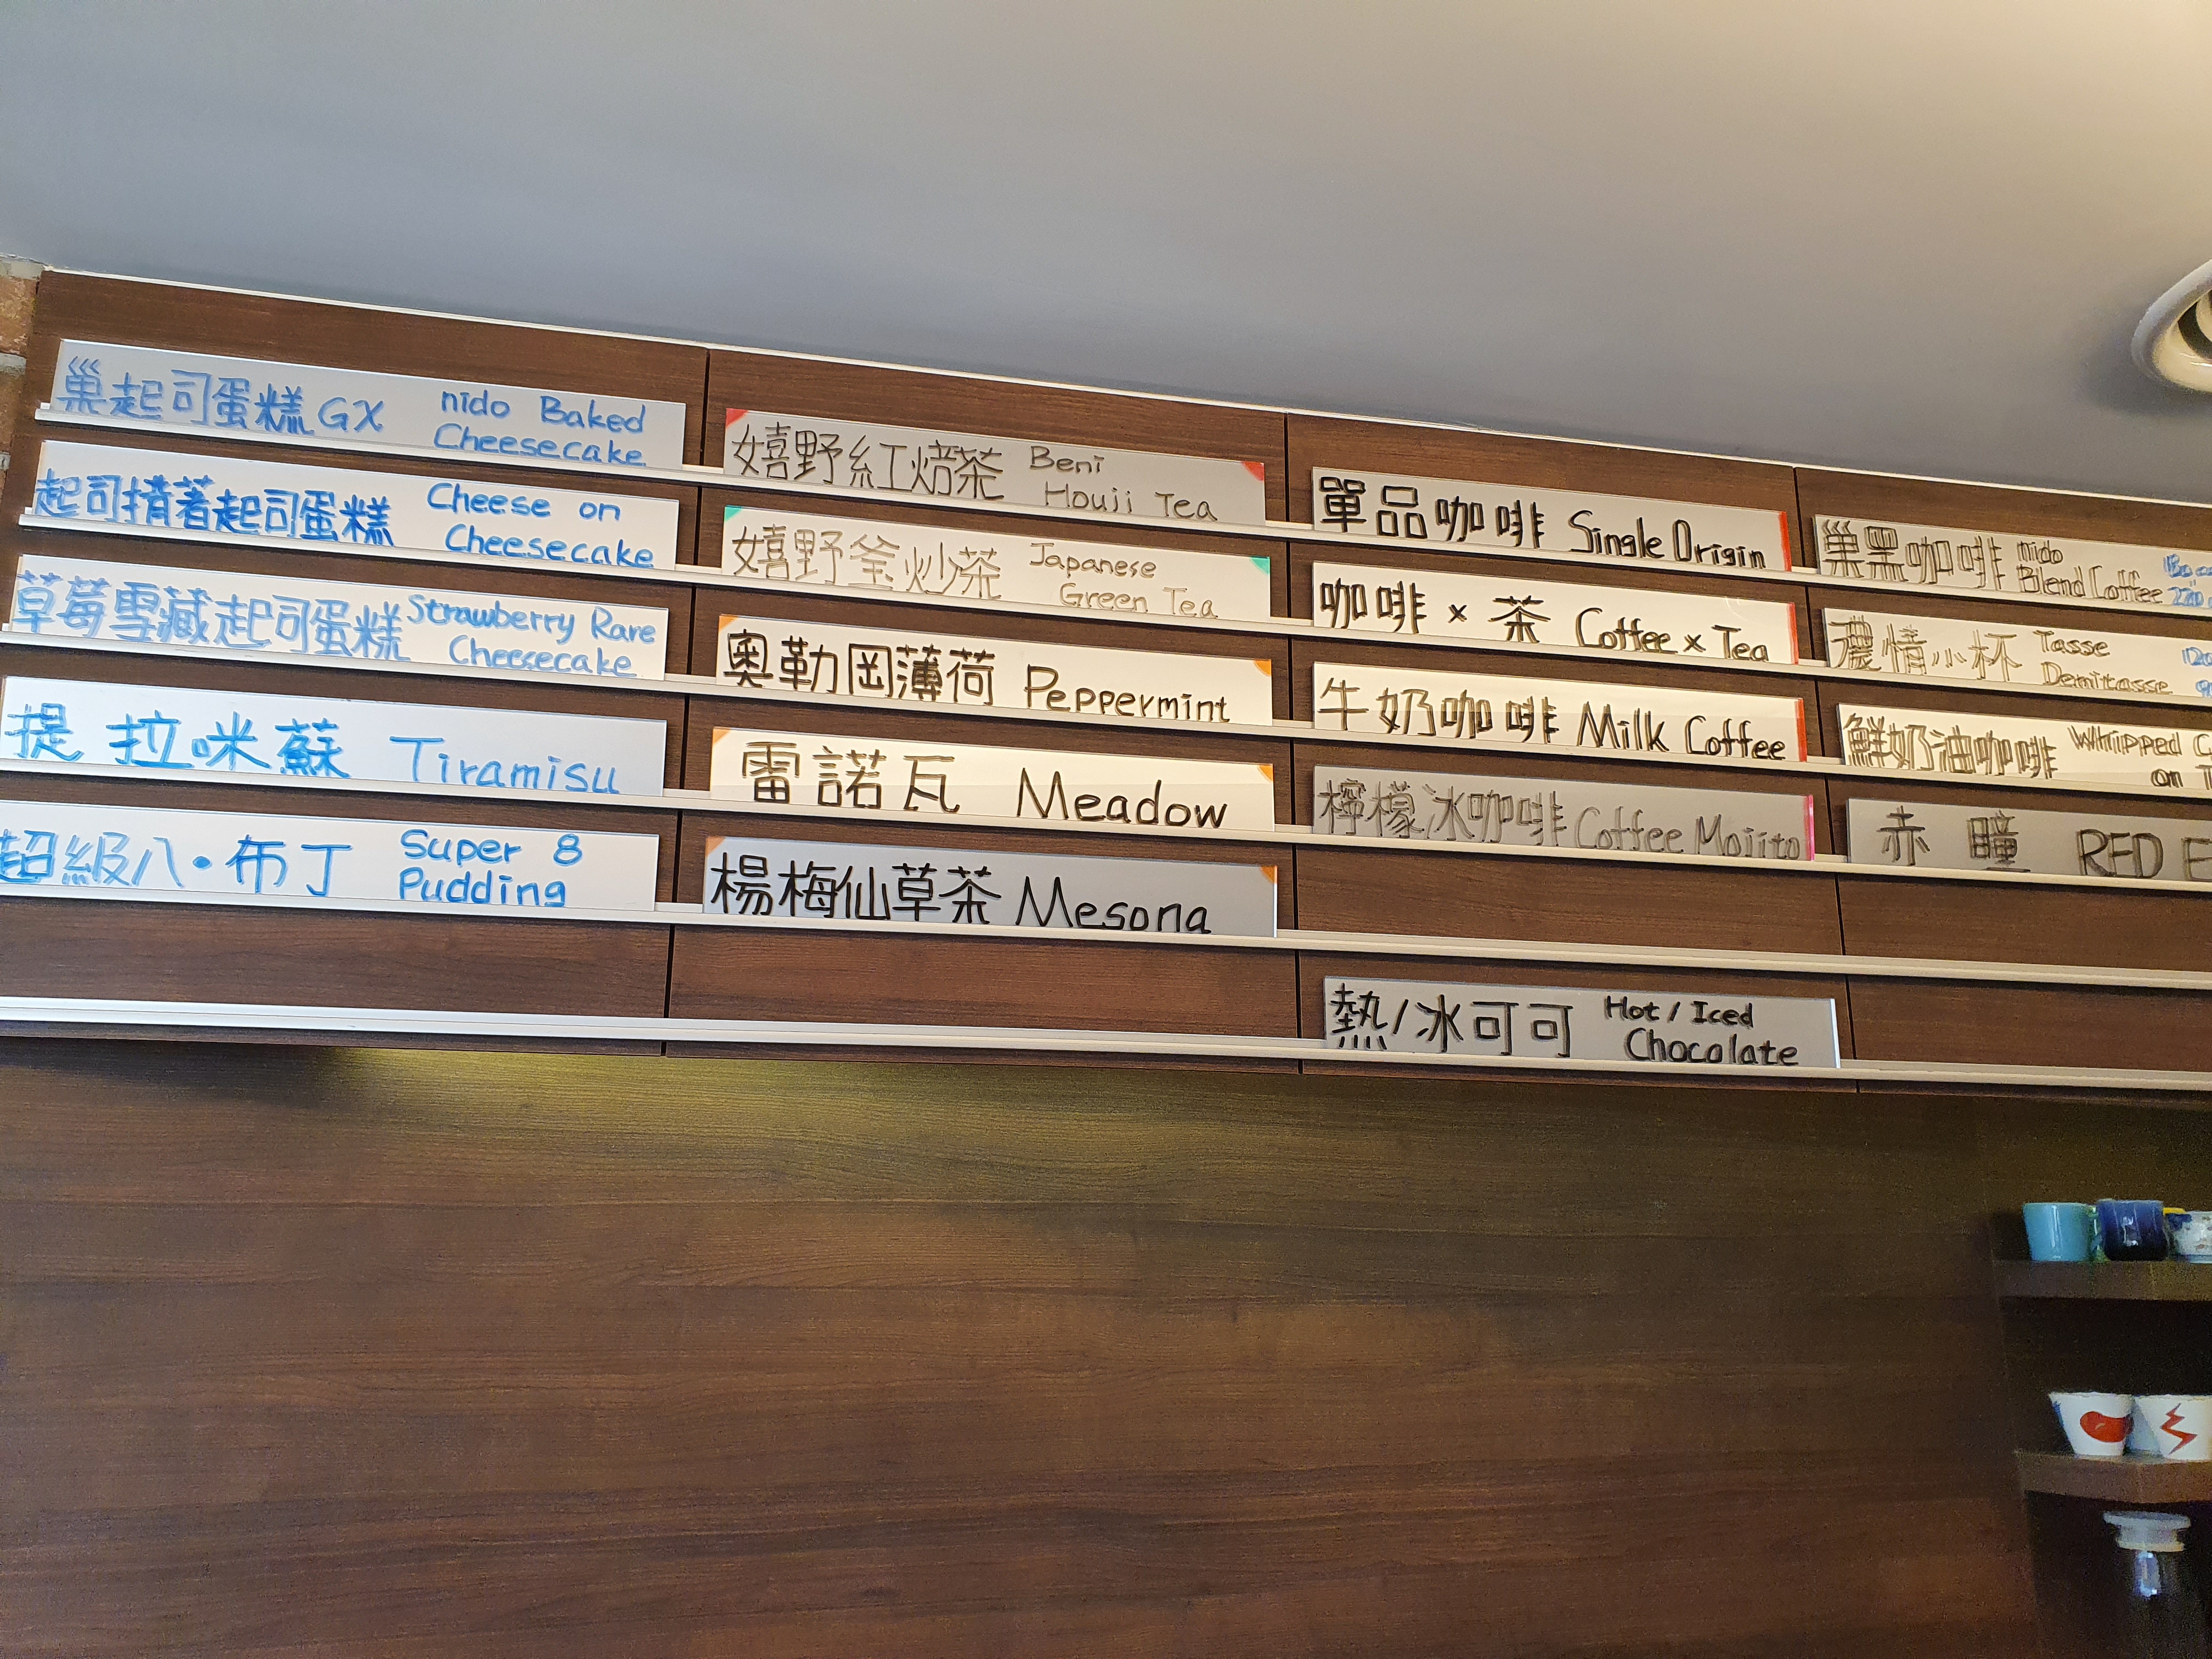 巢起司蛋糕GX nido Baked
Cheesecake
起司揹著起司蛋糕 Cheese on
Cheesecake
草莓雪藏起司蛋糕 Strawberry Rare
Cheesecake
提拉咪蘇 Tiramisu
超級八·布丁 Super 8
Pudding
嬉野紅焙茶 Beni
Houji Tea
嬉野釜炒茶 Japanese
Green Tea
奧勒岡薄荷 Peppermint
雷諾瓦 Meadow
楊梅仙草茶 Mesona
單品咖啡 Single Origin
咖啡 x 茶 Coffee x Tea
牛奶咖啡 Milk Coffee
檸檬冰咖啡 Coffee Mojito
熱/冰可可 Hot / Iced
Chocolate
巢黑咖啡 nido
Blend Coffee
濃情小杯 Tasse
Demitasse
鮮奶油咖啡 Whipped
on
赤瞳 RED